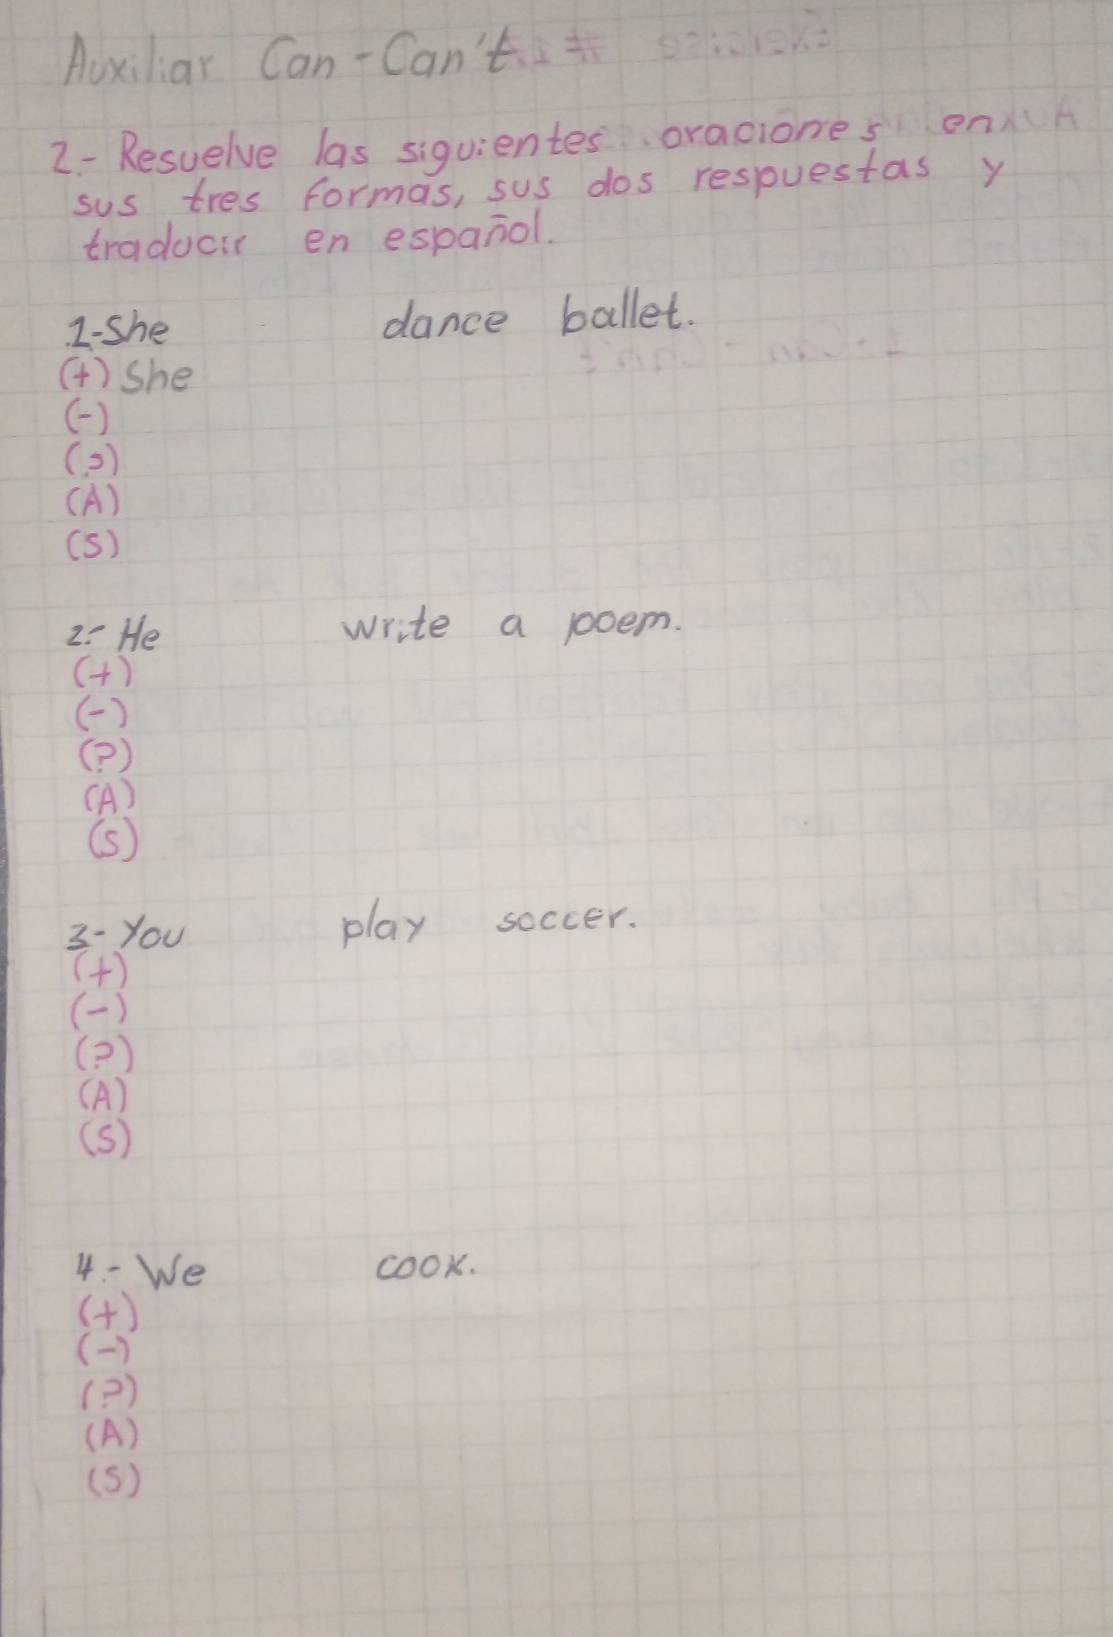 Auxiliar Can-Can't
2.- Resuelve las siguientes oraciones en
sus tres formas, sus dos respuestas y
traducir en español.
1-She dance ballet.
(+) She
(-)
(?)
(A)
(S)
2.- He write a poem.
(+)
(-)
(?)
(A)
(S)
3- You play soccer.
(+)
(-)
(?)
(A)
(S)
4.- We cook.
(+)
(-)
(?)
(A)
(S)